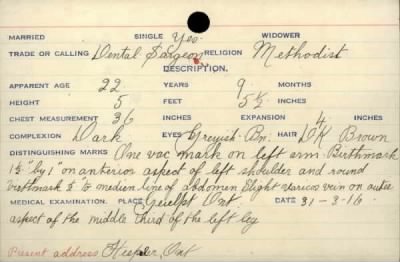 MARRIED SINGLE Yes. WIDOWER
TRADE OR CALLING Dental Surgeon RELIGION Methodist
DESCRIPTION.
APPARENT AGE 22 YEARS 9 MONTHS
HEIGHT 5 FEET 5½ INCHES
CHEST MEASUREMENT 36 INCHES EXPANSION 4 INCHES
COMPLEXION Dark EYES Greyish Bn. HAIR DK Brown
DISTINGUISHING MARKS One vac mark on left arm. Birthmark
1½" by 1" on anterior aspect of left shoulder and round
birthmark 5" to median line of abdomen Slight varicos vein on
MEDICAL EXAMINATION. PLACE Guelph Ont. DATE 31-3-16.
aspect of the middle third of the left leg
Present address Hespeler, Ont